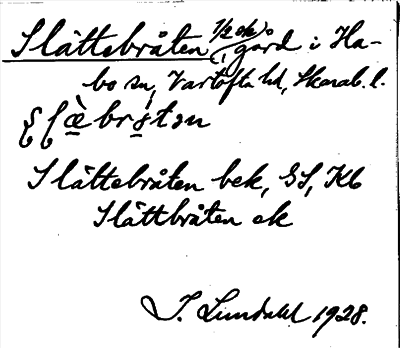 Slättebråten 1/2 ok/o gård i Ha-
bo sn, Vartofta hd, Skarab. l.
Slättebråten bek, GS, Kb
Slättbråten ek
I. Lundahl 1928.